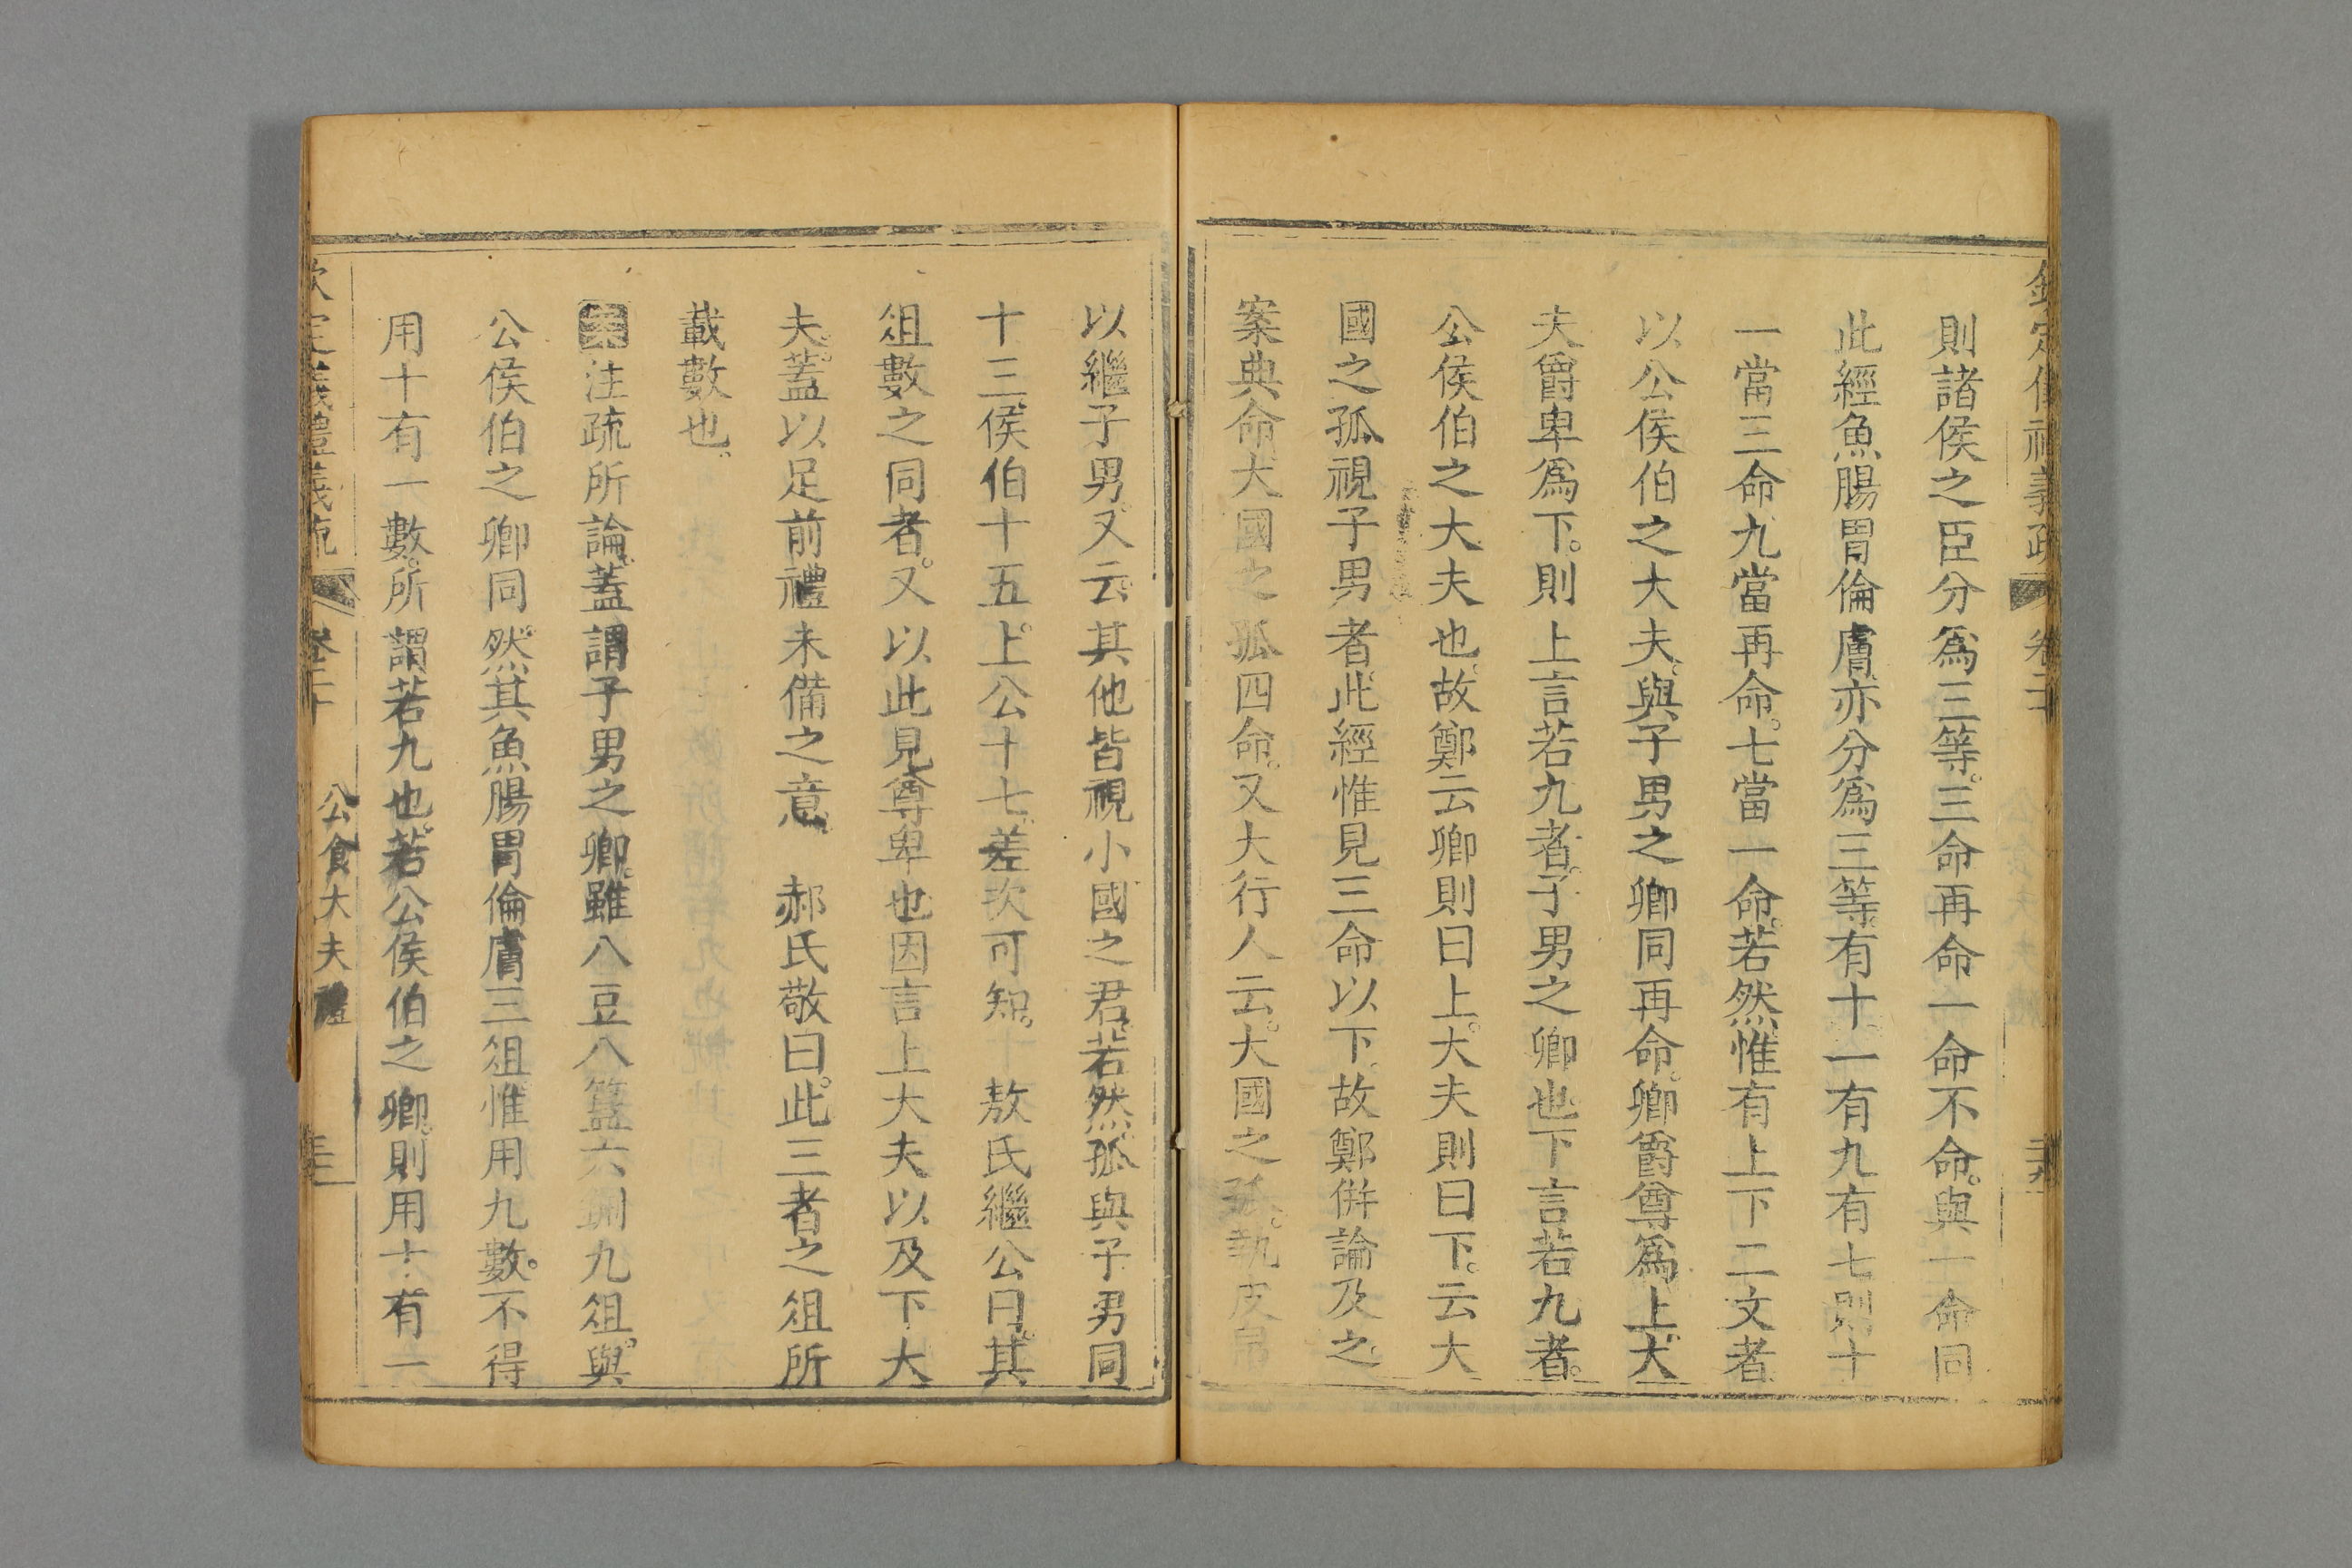 欽定儀禮義疏 卷二十
則諸侯之臣分爲三等。三命再命一命不命。與一命同
此經魚腸胃倫膚亦分爲三等。有十一有九有七則十
一當三命九當再命。七當一命。若然惟有上下二文者
以公侯伯之大夫。與子男之卿同再命。卿爵尊爲上。大
夫爵卑爲下。則上言若九者。子男之卿也下言若九者。
公侯伯之大夫也。故鄭云卿則曰上。大夫則曰下。云大
國之孤視子男者。此經惟見三命以下。故鄭倂論及之。
案典命大國之孤四命。又大行人云。大國之孤。執皮帛
以繼子男。又云。其他皆視小國之君。若然。孤與子男同
十三。侯伯十五。上公十七。差次可知。 敖氏繼公曰。其
俎數之同者。又以此見尊卑也因言上大夫以及下大
夫。蓋以足前禮未備之意。 郝氏敬曰。此三者之俎所
載數也。
案注疏所論。蓋謂子男之卿。雖八豆八簋六鉶九俎。與
公侯伯之卿同。然其魚腸胃倫膚三俎。惟用九數。不得
用十有一數。所謂若九也。若公侯伯之卿。則用十有一
欽定儀禮義疏 卷二十 公食大夫禮 三十